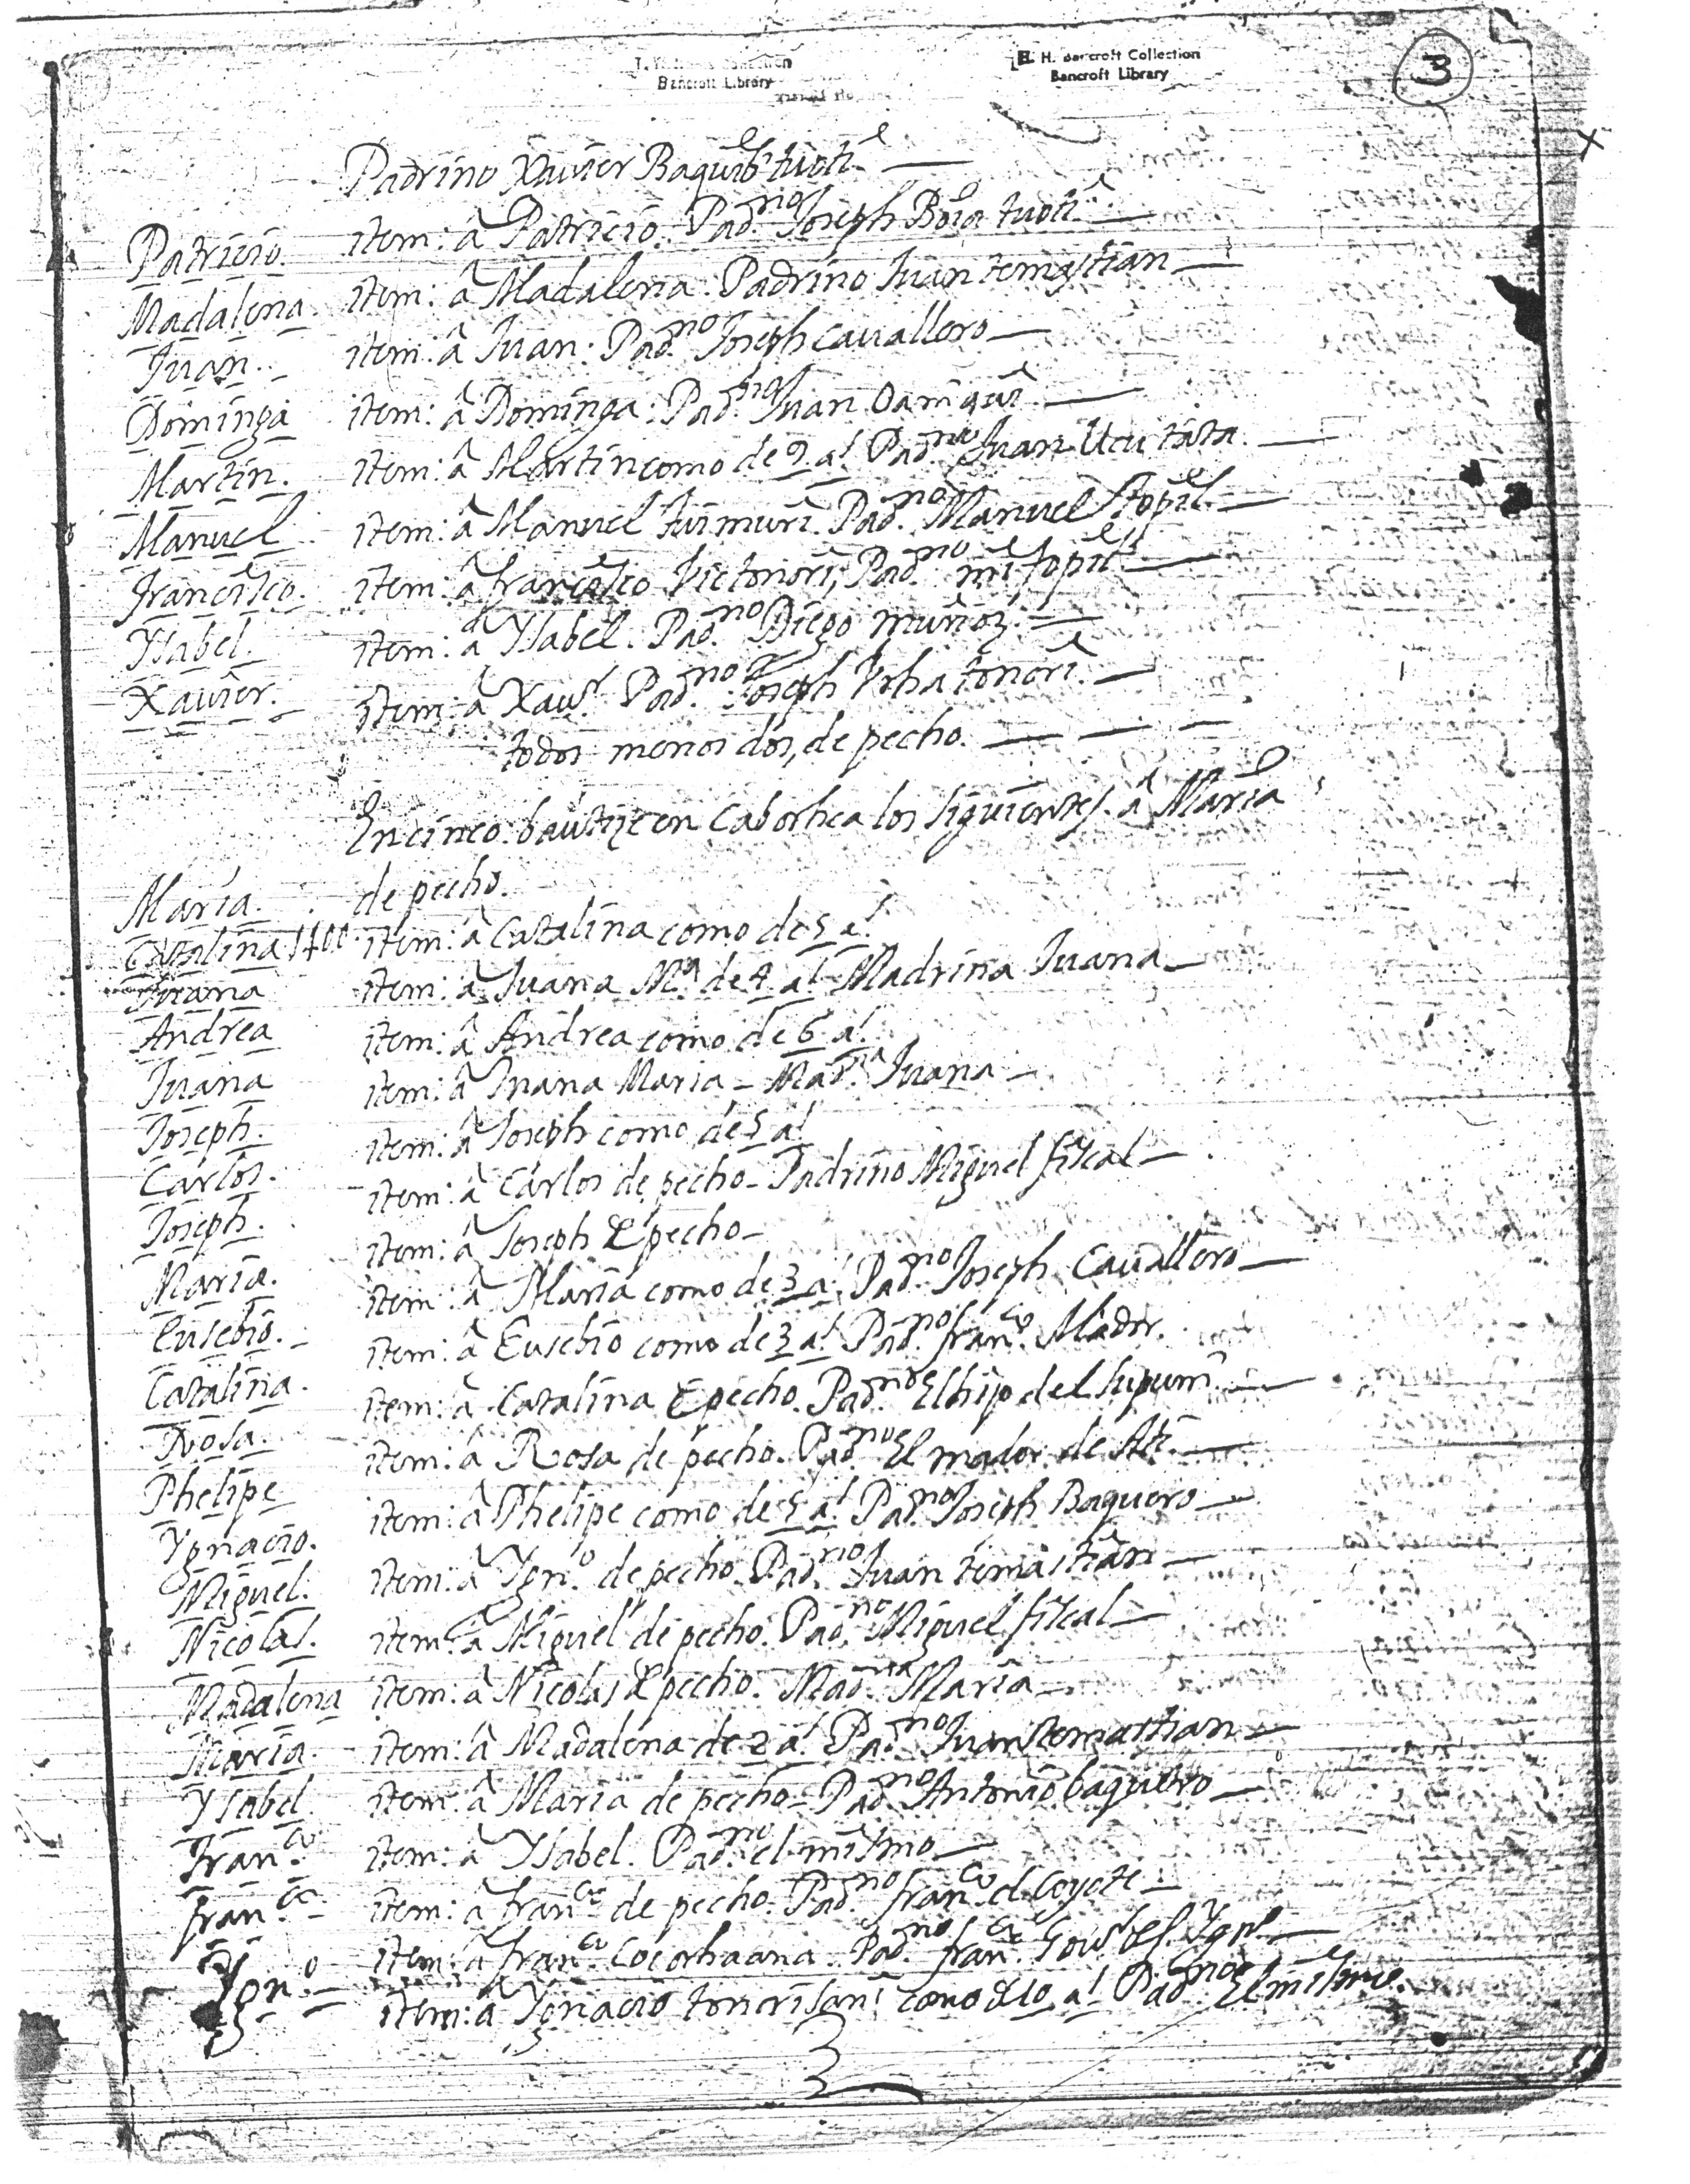 Bancroft Library
H. H. Bancroft Collection
Bancroft Library
3
Padrino Xavier
Patricio. item: â Patricio. Pad.no Joseph
Madalena. item: â Madalena. Padrino Juan temastian
Juan. item: â Juan. Pad.no Joseph cavallero
Dominga item: â Dominga. Pad.no Juan
Martin. item: â Martin como de 9 a.s Pad.no Juan
Manuel item: â Manuel Pad.no Manuel topil
Francisco. item: â Francisco Pad.no topil
Ysabel. item: â Ysabel. Pad.no Diego muñoz
Xavier. item: â Xav.r Pad.no Joseph
todos menos dos, de pecho.
En cinco bautize en Caborhca los siguientes. â Maria
Maria. de pecho.
Catalina item: â Catalina como de 5 a.s
Juana item: â Juana M.a de 4 a.s Madrina Juana
Andrea item: â Andrea como de 6 a.s
Juana item: â Juana Maria - Mad.na Juana
Joseph. item: â Joseph como de 5 a.s
Carlos. item: â Carlos de pecho - Padrino Miguel fiscal
Joseph. item: â Joseph de pecho
Maria. item: â Maria como de 3 a.s Pad.no Joseph Cavallero
Eusebio. item: â Eusebio como de 3 a.s Pad.no fran.co Mador.
Catalina. item: â Catalina de pecho. Pad.no El hijo del
Rosa. item: â Rosa de pecho. Pad.no El mador de Ati
Phelipe item: â Phelipe como de 5 a.s Pad.no Joseph Baquero
Ygnacio. item: â Ygn.o de pecho Pad.no Juan temastian
Miguel. item: â Miguel de pecho. Pad.no Miguel fiscal
Nicolas. item: â Nicolas de pecho. Mad.na Maria
Madalena item: â Madalena de 2 a.s Pad.no Juan temastian
Maria. item: â Maria de pecho - Pad.no Antonio baquero
Ysabel item: â Ysabel. Pad.no el mismo
Fran.co item: â fran.co de pecho. Pad.no fran.co el Coyote
fran.co item: â fran.co Pad.no fran.co
Ygn.o item: â Ygnacio como de 10 a.s Pad.no El mismo.